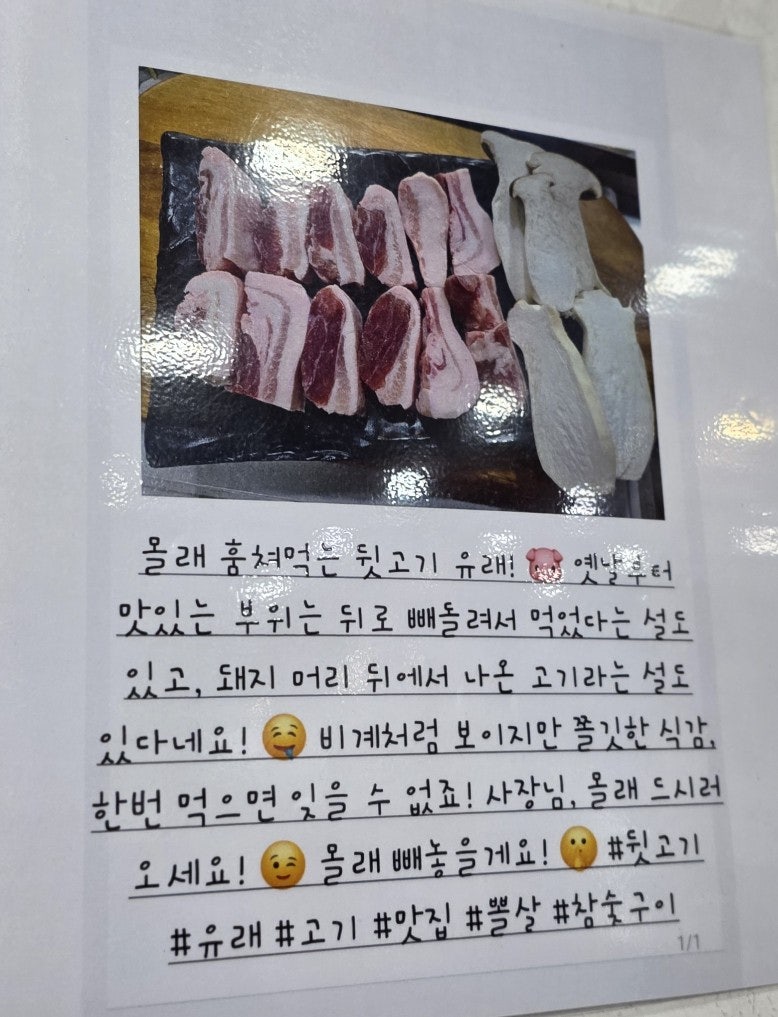 몰래 훔쳐먹는 뒷고기 유래! 🐷 옛날부터
맛있는 부위는 뒤로 빼돌려서 먹었다는 설도
있고, 돼지 머리 뒤에서 나온 고기라는 설도
있다네요! 🤤 비계처럼 보이지만 쫄깃한 식감,
한번 먹으면 잊을 수 없죠! 사장님, 몰래 드시러
오세요! 😉 몰래 빼놓을게요! 🤫 #뒷고기
#유래 #고기 #맛집 #뽈살 #참숯구이
1/1